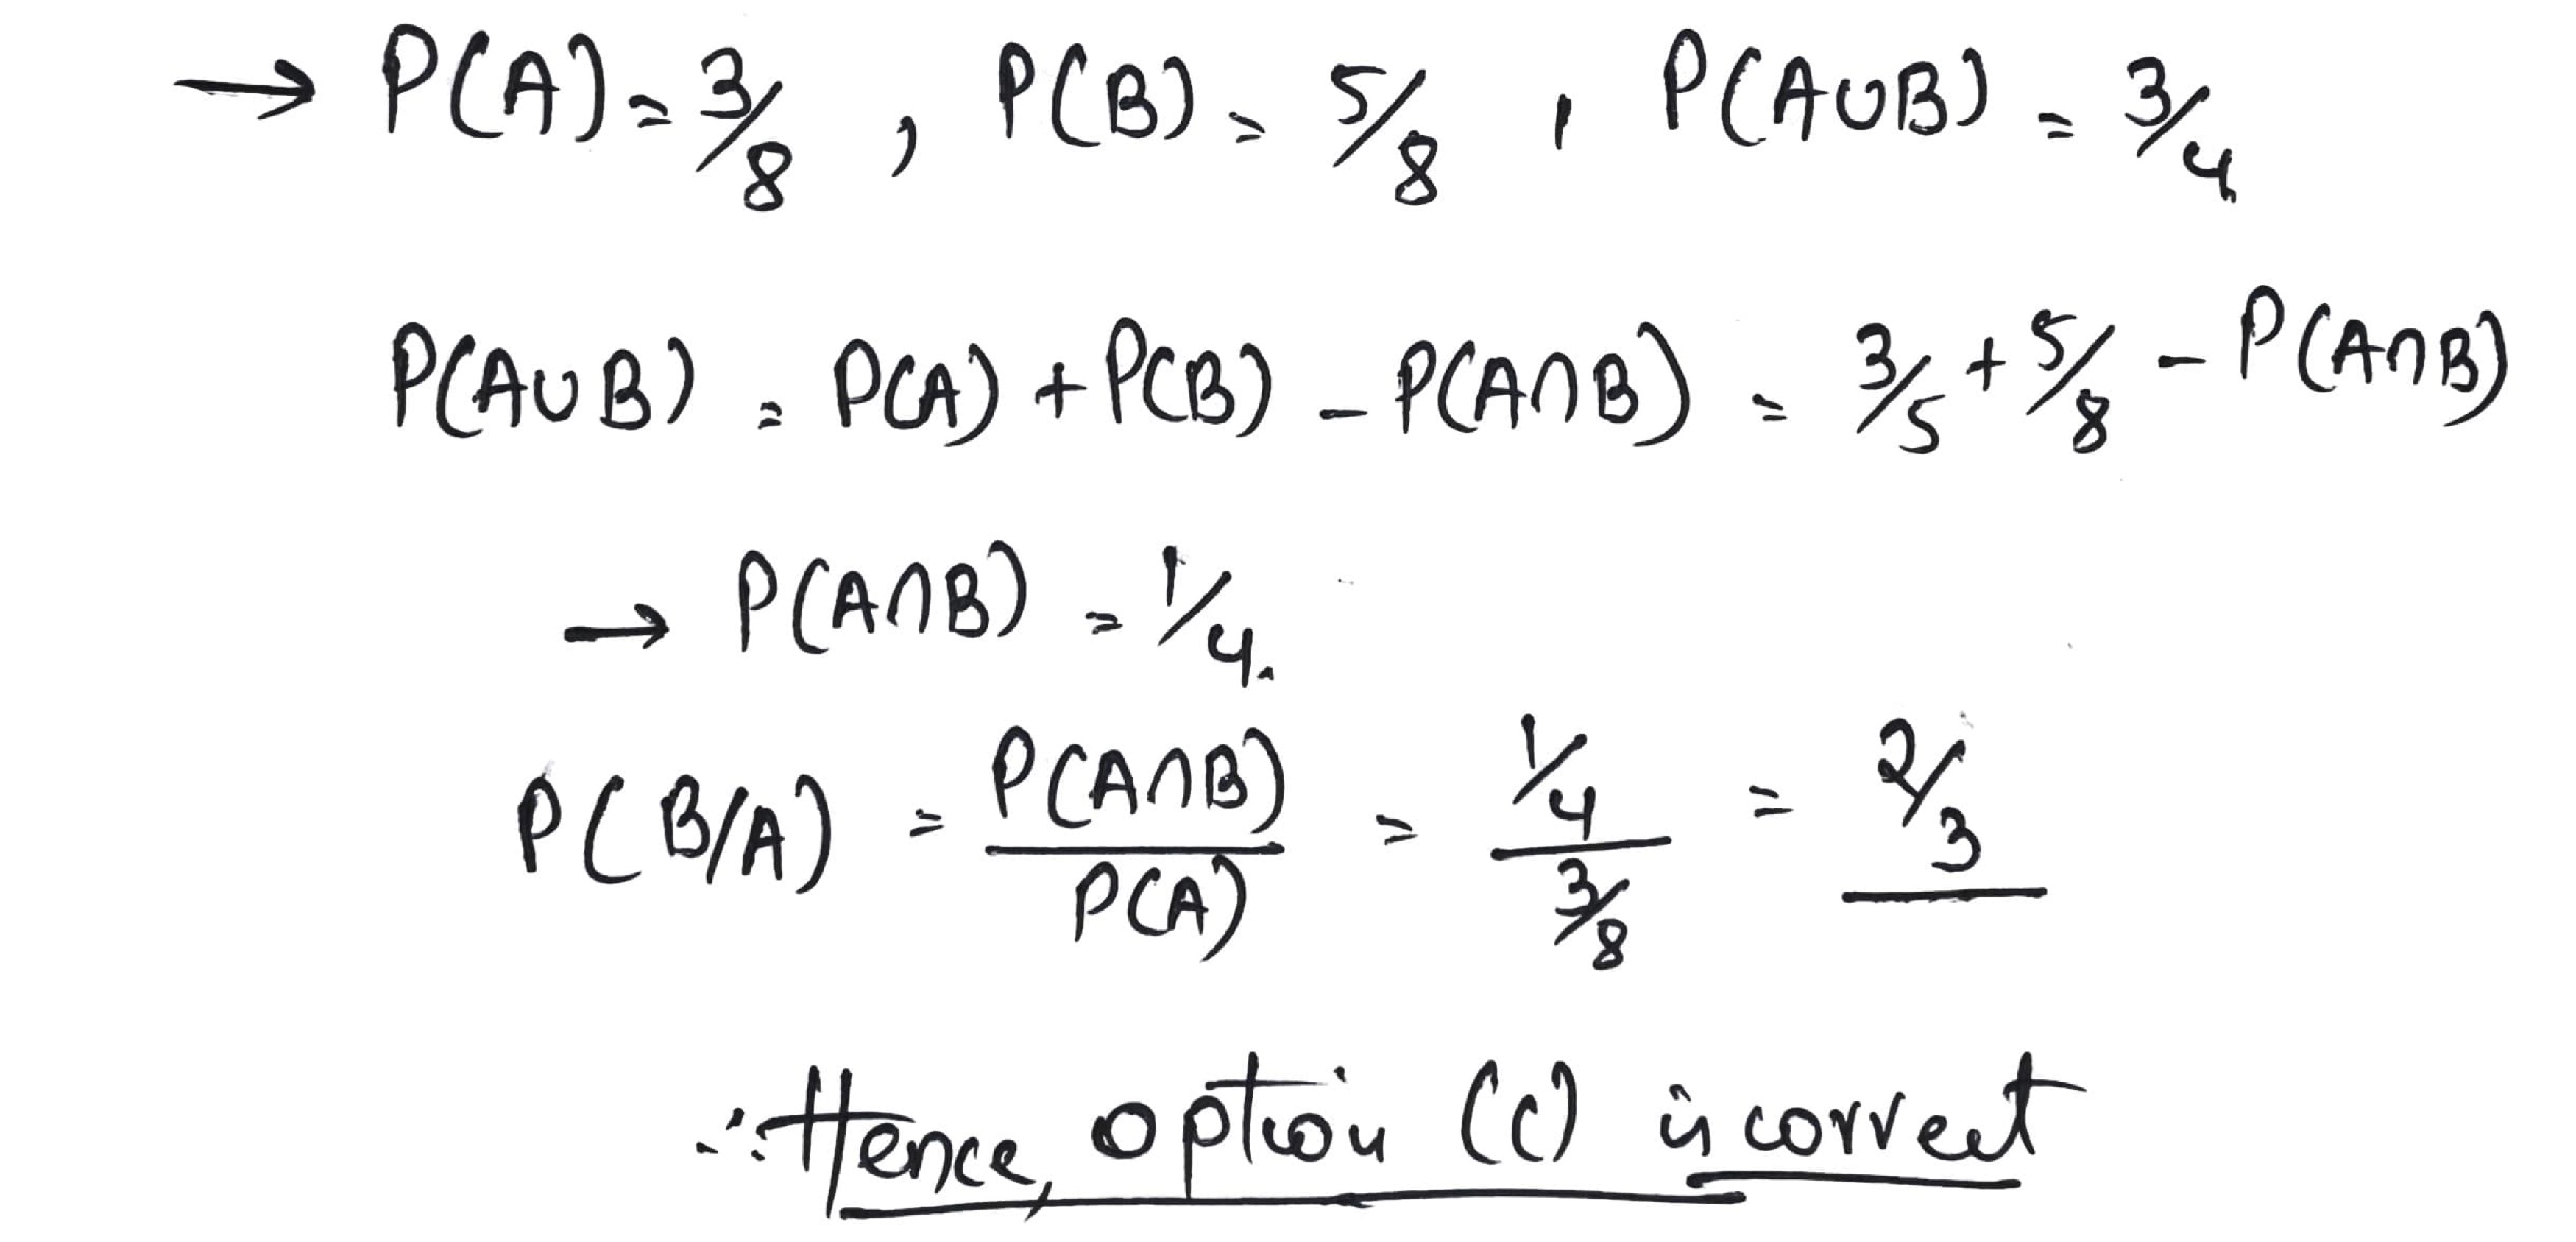 → P(A) = 3/8 , P(B) = 5/8 , P(A∪B) = 3/4
P(A∪B) = P(A) + P(B) - P(A∩B) = 3/5 + 5/8 - P(A∩B)
→ P(A∩B) = 1/4.
P(B/A) = P(A∩B)/P(A) = (1/4)/(3/8) = 2/3
∴ Hence, option (c) is correct